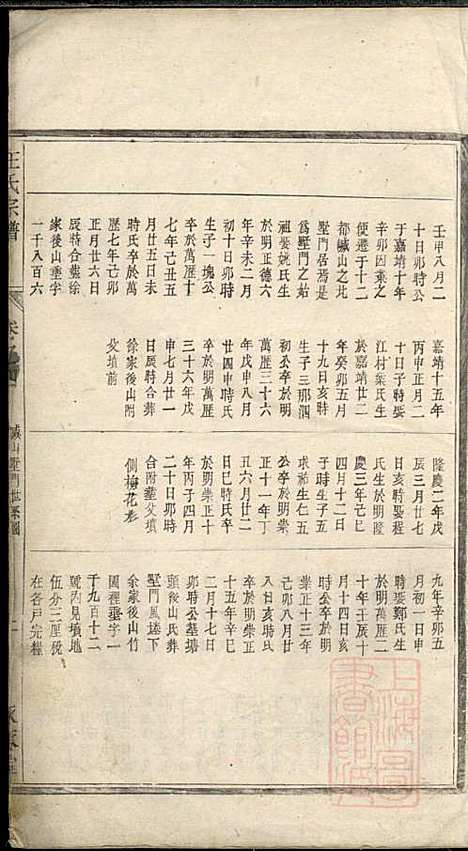 壬申八月二
十日卯時公
于嘉靖十年
辛卯因葉之
便遷于十二
都城山之北
墅門居焉是
為墅門之始
祖娶姚氏生
於明正德六
年辛未二月
初十日卯時
生子一塊公
卒於萬歷十
七年己丑五
月廿五日未
時氏卒於萬
歷七年己卯
正月廿六日
辰時合葬徐
家後山垂字
一千八百六
嘉靖十五年
丙申正月二
十日子時娶
江村葉氏生
於嘉靖廿二
年癸卯五月
十九日亥時
生子三那泗
初公卒於明
萬歷三十六
年戊申八月
廿四申時氏
卒於明萬歷
三十六年戊
申七月廿一
日辰時合葬
徐家後山附
父墳前
隆慶二年戊
辰三月廿七
日亥時娶程
氏生於明隆
慶三年己巳
四月十二日
子時生子五
求祥生仁五
公卒於明崇
正十一年丁
丑六月廿二
日巳時氏卒
於明崇正十
年丙子四月
二十日卯時
合附葬父墳
側梅花形
九年辛卯五
月初一日申
時娶鄭氏生
於明萬歷二
十年壬辰十
月十四日亥
時公卒於明
崇正十三年
己卯八月廿
八日亥時氏
卒於明崇正
十五年辛巳
二月十七日
卯時公墓塘
頭後山氏葬
墅門風堨下
余家後山竹
園裡垂字一
千九百十二
號丙見塝地
伍分三厘税
在各戶完糧
汪氏宗譜
卷之
城山墅門世系圖
上海圖書館藏